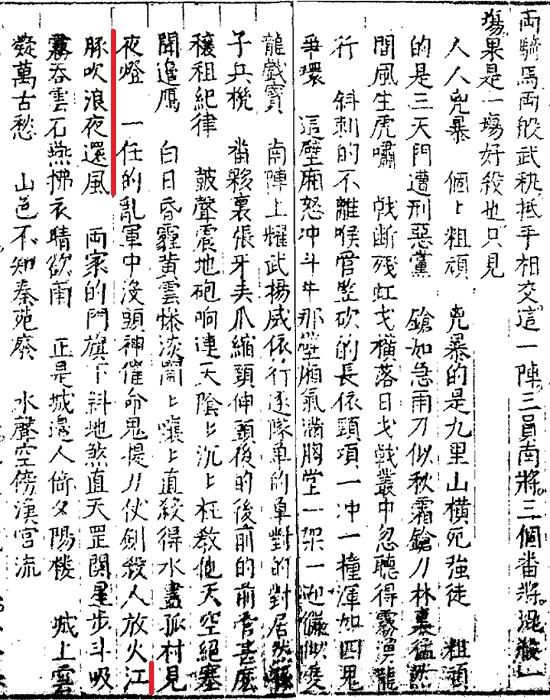 両騎馬両般武機抵手相交這一陣三員南將三個番將混殺一
塲果是一塲好殺也只見
人人兇暴　個〻粗頑　兇暴的是九里山橫死強徒　粗頑
的是三天門遭刑惡黨　鎗如急雨刀似秋霜鎗刀林裏猛然
間風生虎嘯　戟斷殘虹戈橫落日戈戟叢中忽聽得霧湧龍
行　斜刺的不離喉管竪砍的長依頸項一冲一撞渾如四鬼
爭環　這壁廂怒冲斗牛那壁廂氣滿胸堂一架一迎儼似雙
龍戲寶　南陣上耀武揚威依行逐隊單的單對的對居然
子兵機　畨夥裏張牙夫爪縮頸伸頭後的後前的前管甚麽
穰苴紀律　皷聲震地砲响連天陰〻沉〻枉教他天空絕塞
聞邊鴈　白日昏霾黃雲慘淡閙〻嚷〻直殺得水盡孤村見
夜燈　一任的亂軍中沒頭神催命鬼提刀仗劍殺人放火江
豚吹浪夜還風　両家的門旗下斜地煞直天罡閗星步斗吸
霧吞雲石燕拂衣晴欲雨　正是城邉人倚夕陽樓　城上雲
凝萬古愁　山色不知秦苑廢　水聲空傍漢宮流